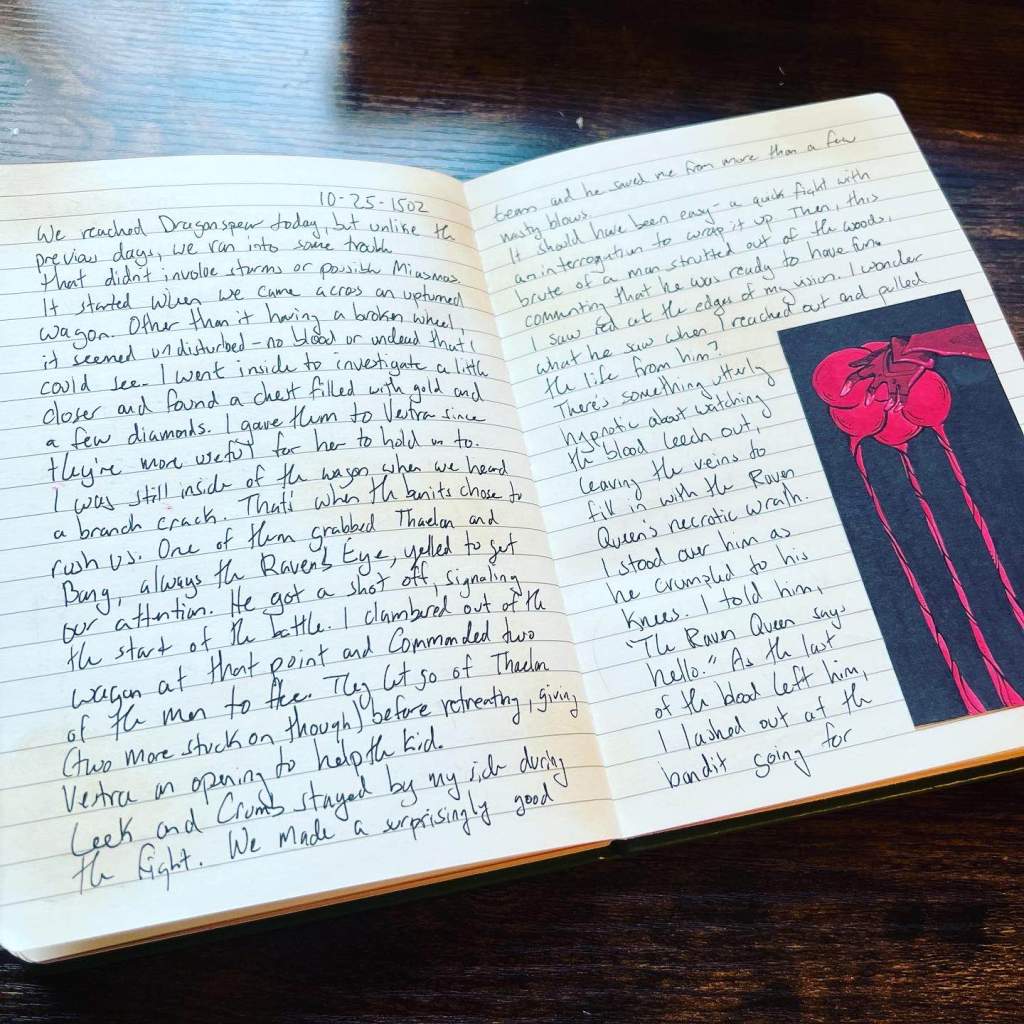 10-25-1502
We reached Dragonspear today, but unlike the
previous days, we ran into some trouble
that didn't involve storms or possible Miasmas.
It started when we came across an upturned
wagon. Other than it having a broken wheel,
it seemed undisturbed - no blood or undead that I
could see. I went inside to investigate a little
closer and found a chest filled with gold and
a few diamonds. I gave them to Vestra since
they're more useful for her to hold on to.
I was still inside of the wagon when we heard
a branch crack. That's when the banits chose to
rush us. One of them grabbed Thaelan and
Bang, always the Raven's Eye, yelled to get
our attention. He got a shot off, signaling
the start of the battle. I clambered out of the
wagon at that point and Commanded two
of the men to flee. They let go of Thaelan
(two more stuck on though) before retreating, giving
Vestra an opening to help the kid.
Leek and Crumb stayed by my side during
the fight. We made a surprisingly good
team and he saved me from more than a few
nasty blows.
It should have been easy - a quick fight with
an interrogation to wrap it up. Then, this
brute of a man strutted out of the woods,
commenting that he was ready to have fun.
I saw red at the edges of my vision. I wonder
what he saw when I reached out and pulled
the life from him?
There's something utterly
hypnotic about watching
the blood leech out,
leaving the veins to
fill in with the Raven
Queen's necrotic wrath.
I stood over him as
he crumpled to his
knees. I told him,
"The Raven Queen says
hello." As the last
of the blood left him,
I lashed out at the
bandit going for